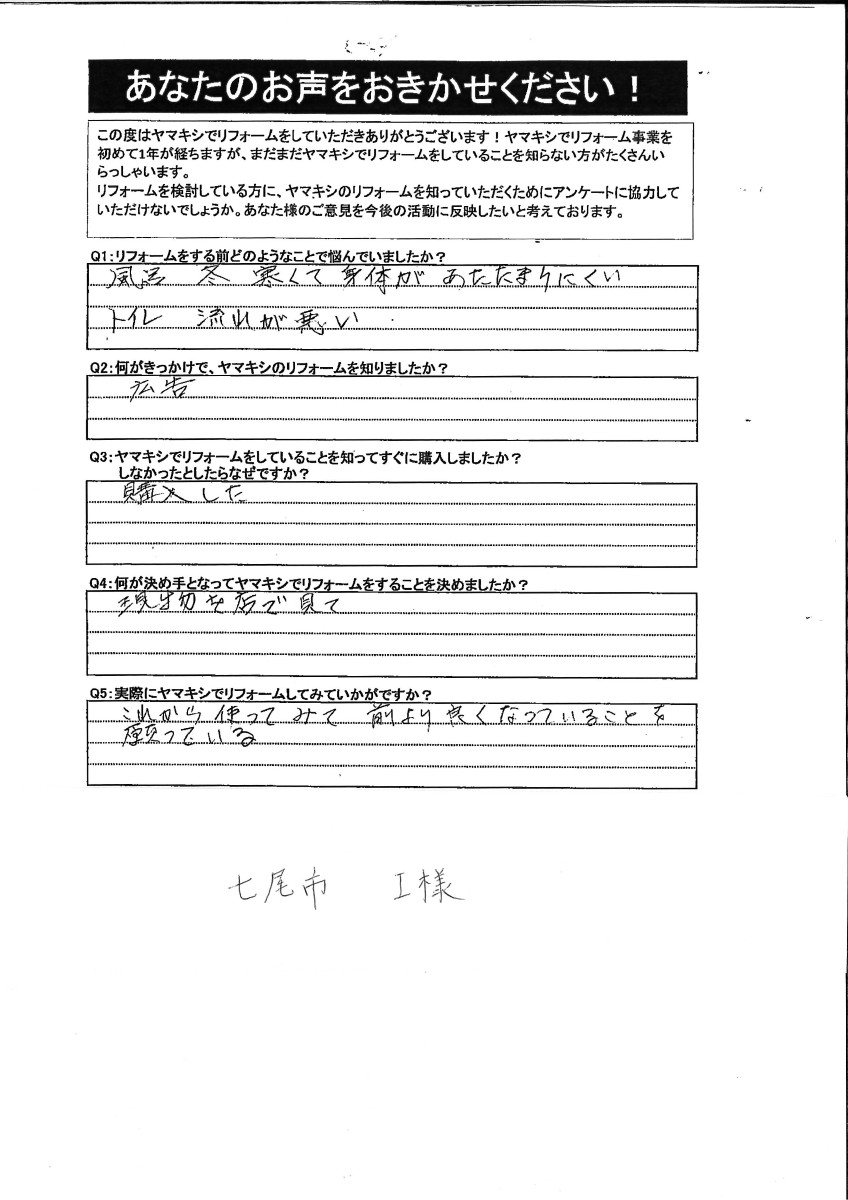 あなたのお声をおきかせください！
この度はヤマキシでリフォームをしていただきありがとうございます！ヤマキシでリフォーム事業を
初めて1年が経ちますが、まだまだヤマキシでリフォームをしていることを知らない方がたくさんい
らっしゃいます。
リフォームを検討している方に、ヤマキシのリフォームを知っていただくためにアンケートに協力して
いただけないでしょうか。あなた様のご意見を今後の活動に反映したいと考えております。
Q1：リフォームをする前どのようなことで悩んでいましたか？
風呂 冬 寒くて身体が あたたまりにくい
トイレ 流れが悪い
Q2：何がきっかけで、ヤマキシのリフォームを知りましたか？
広告
Q3：ヤマキシでリフォームをしていることを知ってすぐに購入しましたか？
しなかったとしたらなぜですか？
購入した
Q4：何が決め手となってヤマキシでリフォームをすることを決めましたか？
現物を店で見て
Q5：実際にヤマキシでリフォームしてみていかがですか？
これから使ってみて 前より良くなっていることを
願っている
七尾市 I様